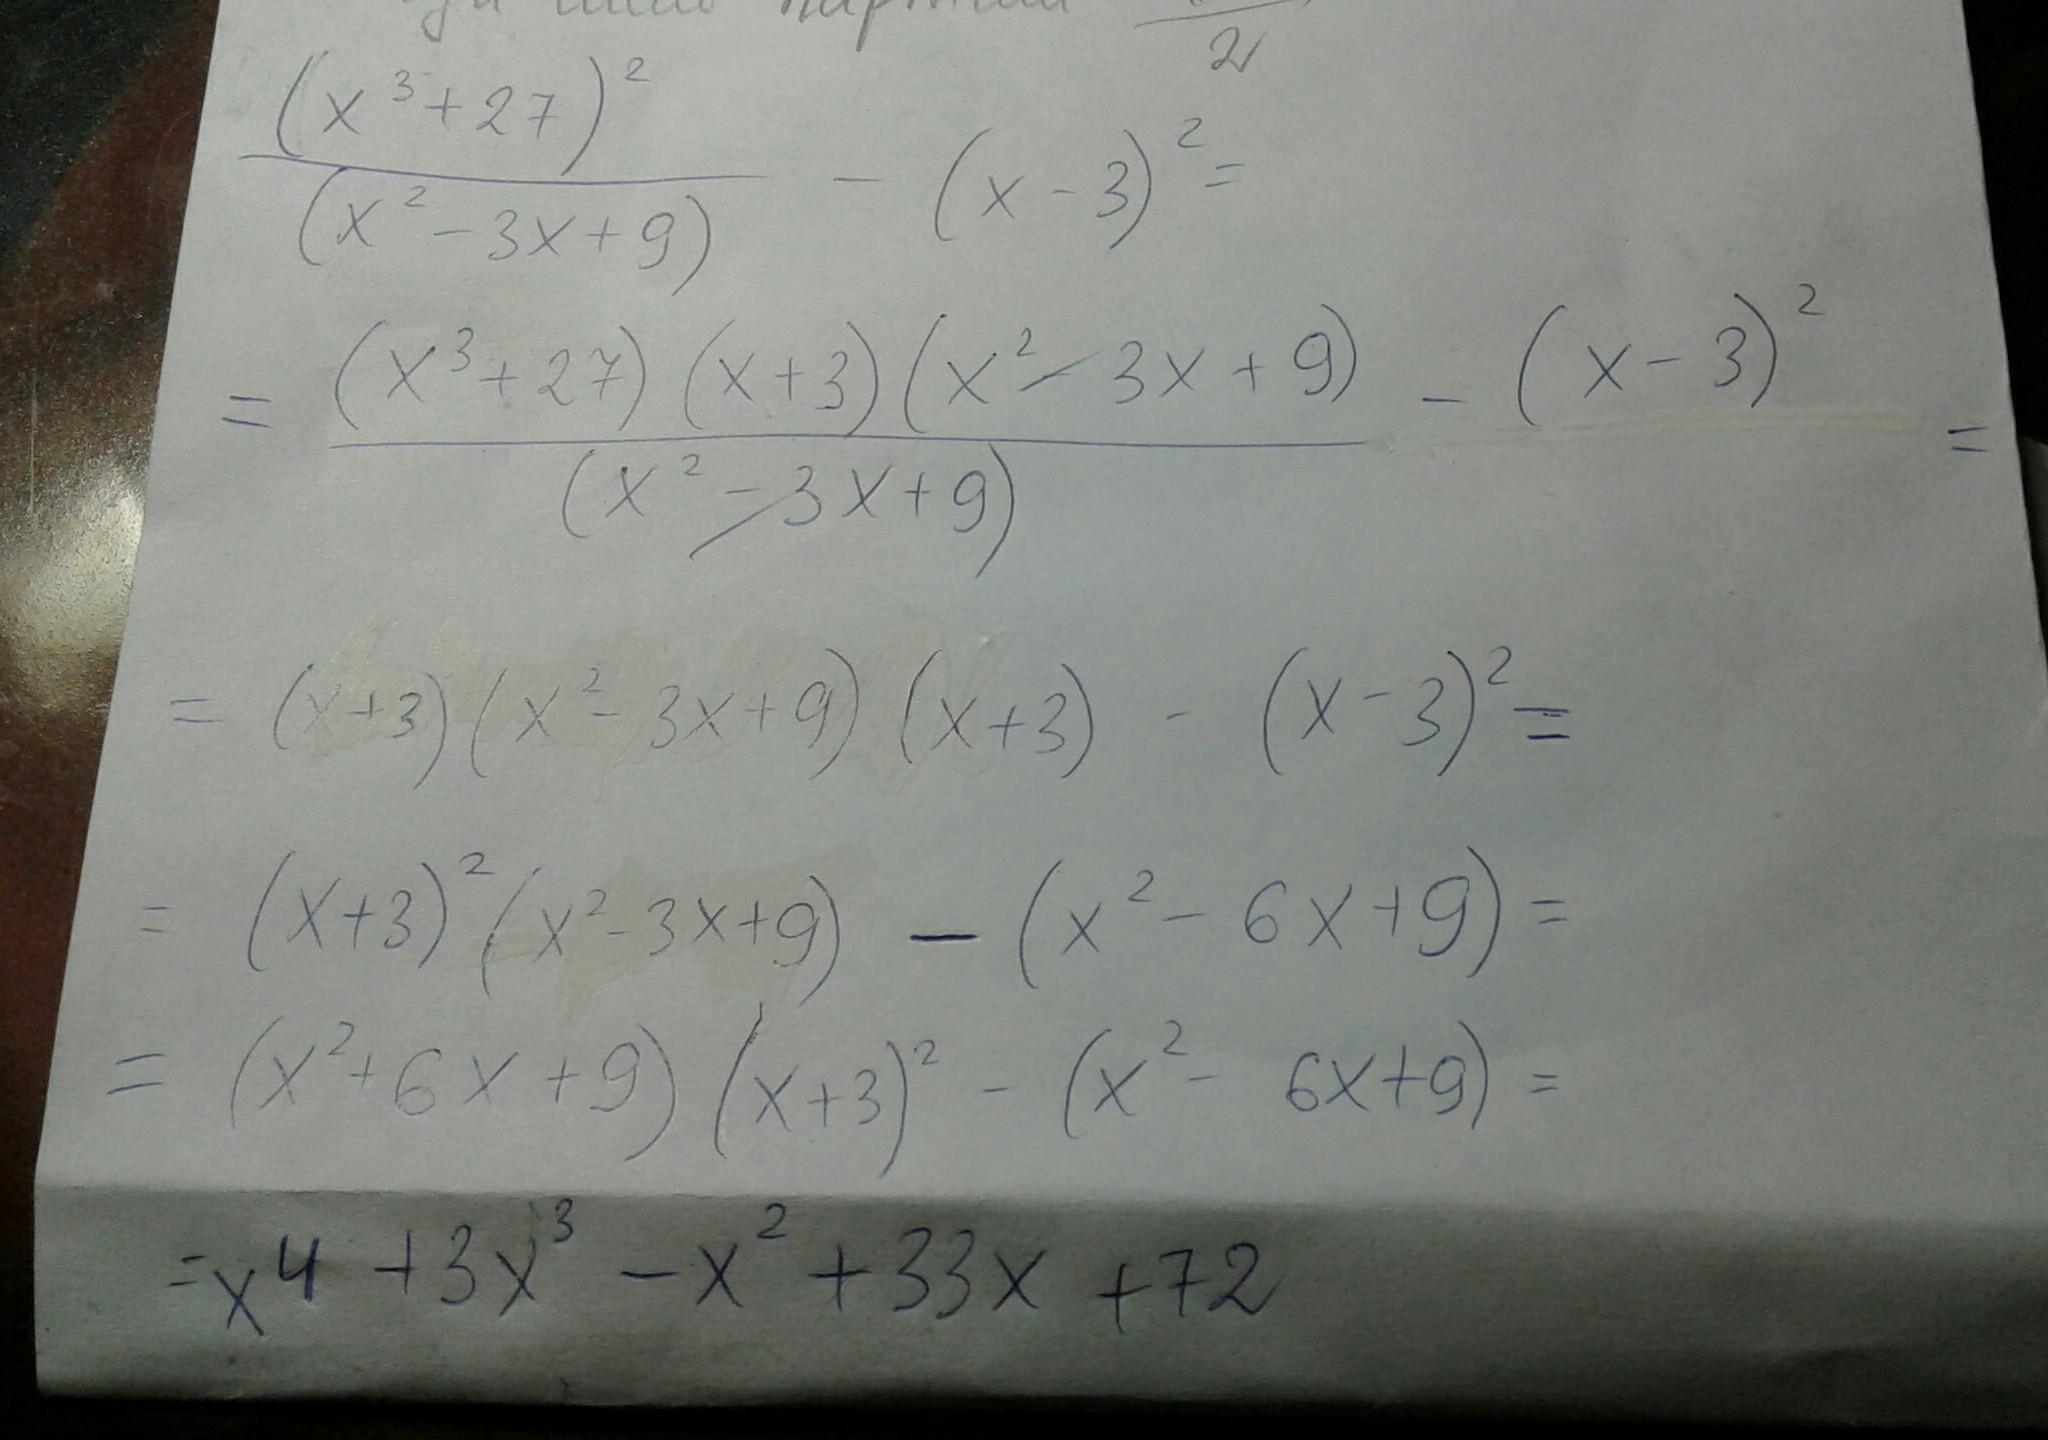 2
(x³+27)² / (x²-3x+9) - (x-3)² =
= (x³+27)(x+3)(x²-3x+9) / (x²-3x+9) - (x-3)² =
= (x+3)(x²-3x+9)(x+3) - (x-3)² =
= (x+3)²(x²-3x+9) - (x²-6x+9) =
= (x²+6x+9)(x+3)² - (x²-6x+9) =
= x⁴ + 3x³ - x² + 33x + 72